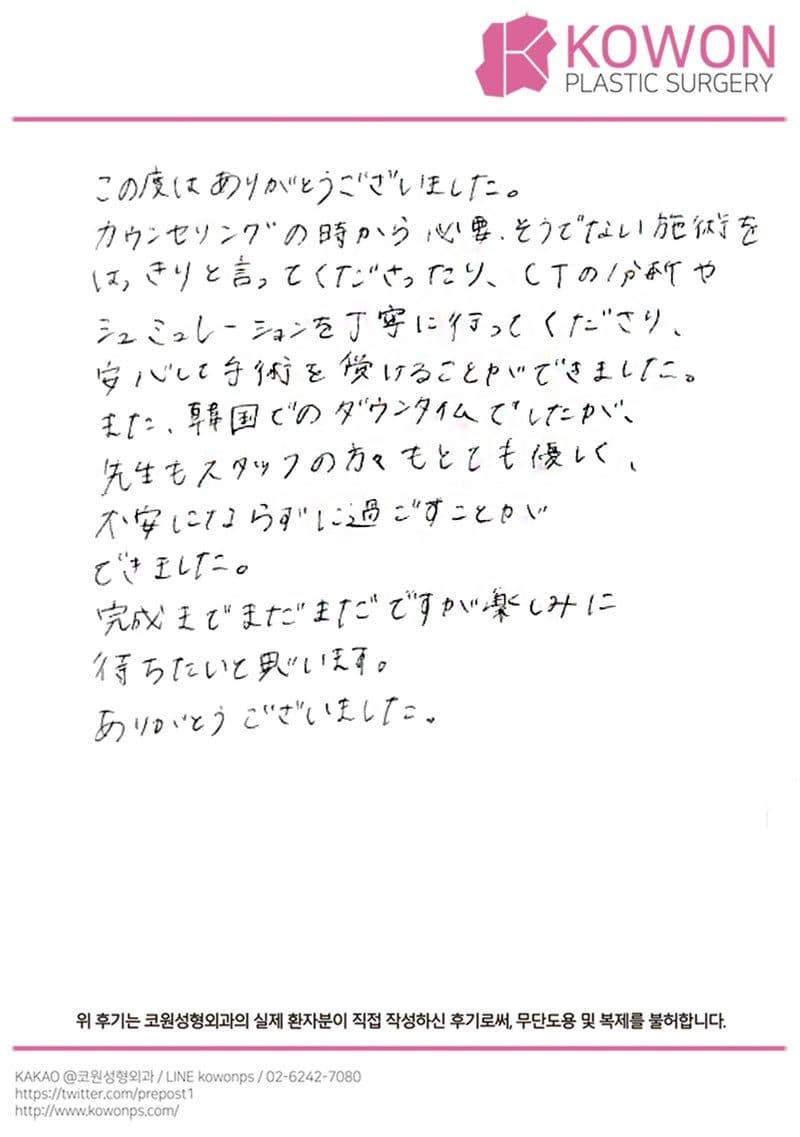 KOWON
PLASTIC SURGERY
この度はありがとうございました。
カウンセリングの時から必要、そうでない施術を
はっきりと言ってくださったり、CTの分析や
シュミュレーションを丁寧に行ってくださり、
安心して手術を受けることができました。
また、韓国でのダウンタイムでしたが、
先生もスタッフの方々もとても優しく、
不安にならずに過ごすことが
できました。
完成までまだまだですが楽しみに
待ちたいと思います。
ありがとうございました。
위 후기는 코원성형외과의 실제 환자분이 직접 작성하신 후기로써, 무단도용 및 복제를 불허합니다.
KAKAO @코원성형외과 / LINE kowonps / 02-6242-7080
https://twitter.com/prepost1
http://www.kowonps.com/